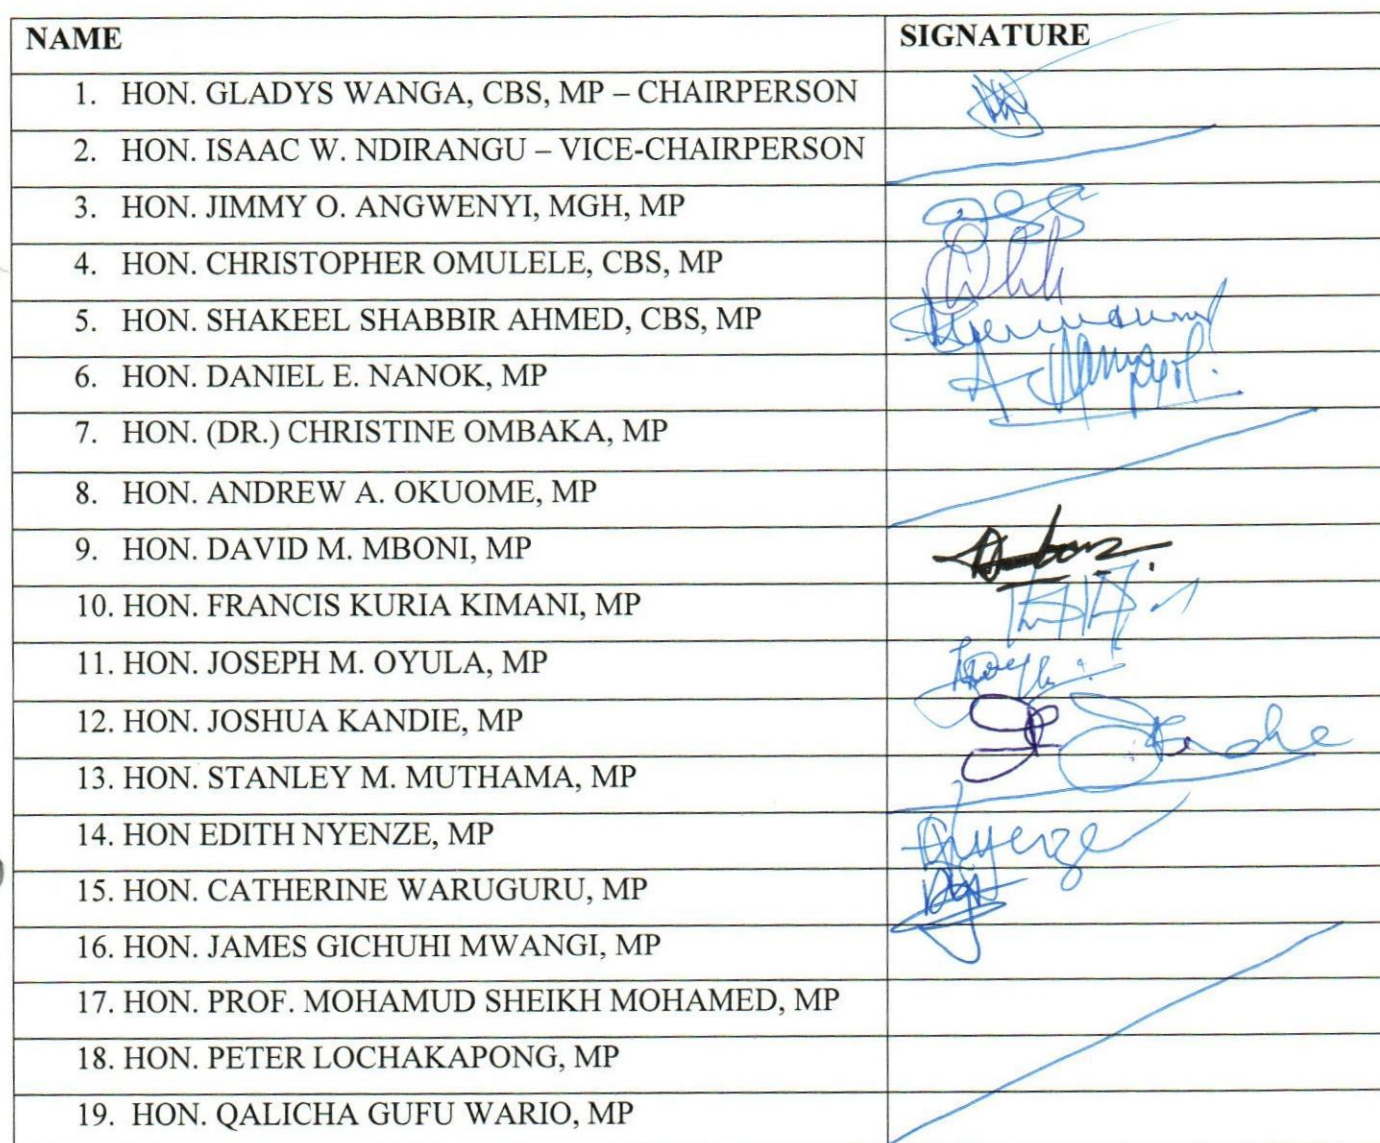 NAME SIGNATURE
1. HON. GLADYS WANGA, CBS, MP – CHAIRPERSON
2. HON. ISAAC W. NDIRANGU – VICE-CHAIRPERSON
3. HON. JIMMY O. ANGWENYI, MGH, MP
4. HON. CHRISTOPHER OMULELE, CBS, MP
5. HON. SHAKEEL SHABBIR AHMED, CBS, MP
6. HON. DANIEL E. NANOK, MP
7. HON. (DR.) CHRISTINE OMBAKA, MP
8. HON. ANDREW A. OKUOME, MP
9. HON. DAVID M. MBONI, MP
10. HON. FRANCIS KURIA KIMANI, MP
11. HON. JOSEPH M. OYULA, MP
12. HON. JOSHUA KANDIE, MP
13. HON. STANLEY M. MUTHAMA, MP
14. HON EDITH NYENZE, MP
15. HON. CATHERINE WARUGURU, MP
16. HON. JAMES GICHUHI MWANGI, MP
17. HON. PROF. MOHAMUD SHEIKH MOHAMED, MP
18. HON. PETER LOCHAKAPONG, MP
19. HON. QALICHA GUFU WARIO, MP